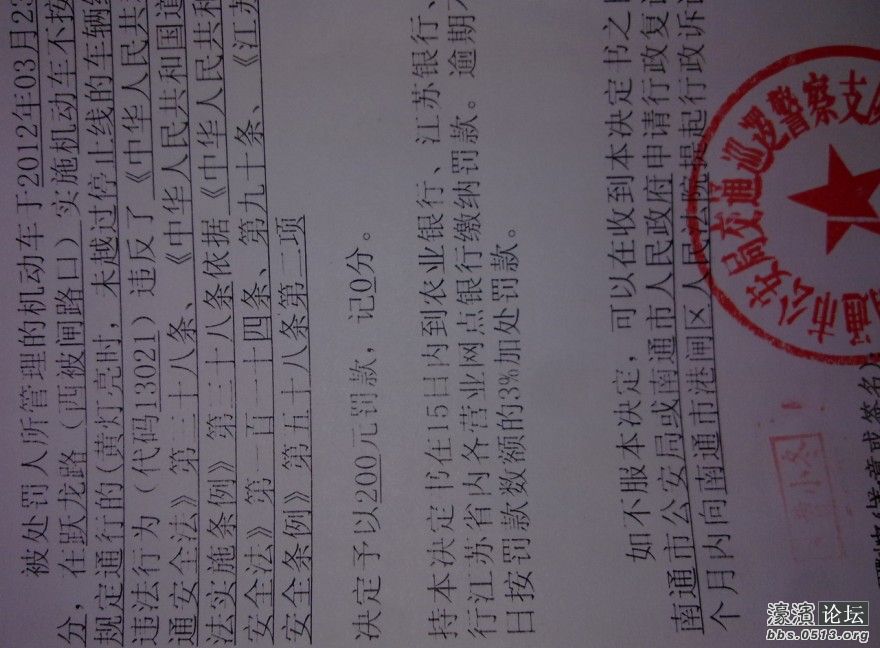 被处罚人所管理的机动车于2012年03月23
分，在跃龙路（西被闸路口）实施机动车不按
规定通行的(黄灯亮时，未越过停止线的车辆继
违法行为（代码13021）违反了《中华人民共
通安全法》第三十八条、《中华人民共和国道
法实施条例》第三十八条依据《中华人民共和
安全法》第一百一十四条、第九十条、《江苏
安全条例》第五十八条第二项
决定予以200元罚款，记0分。
持本决定书在15日内到农业银行、江苏银行、
行江苏省内各营业网点银行缴纳罚款。逾期不
日按罚款数额的3%加处罚款。
如不服本决定，可以在收到本决定书之日
南通市公安局或南通市人民政府申请行政复议
个月内向南通市港闸区人民法院提起行政诉讼
通市公安局交通巡逻警察支
小冬
(盖章或签名)
濠滨论坛
bbs.0513.org